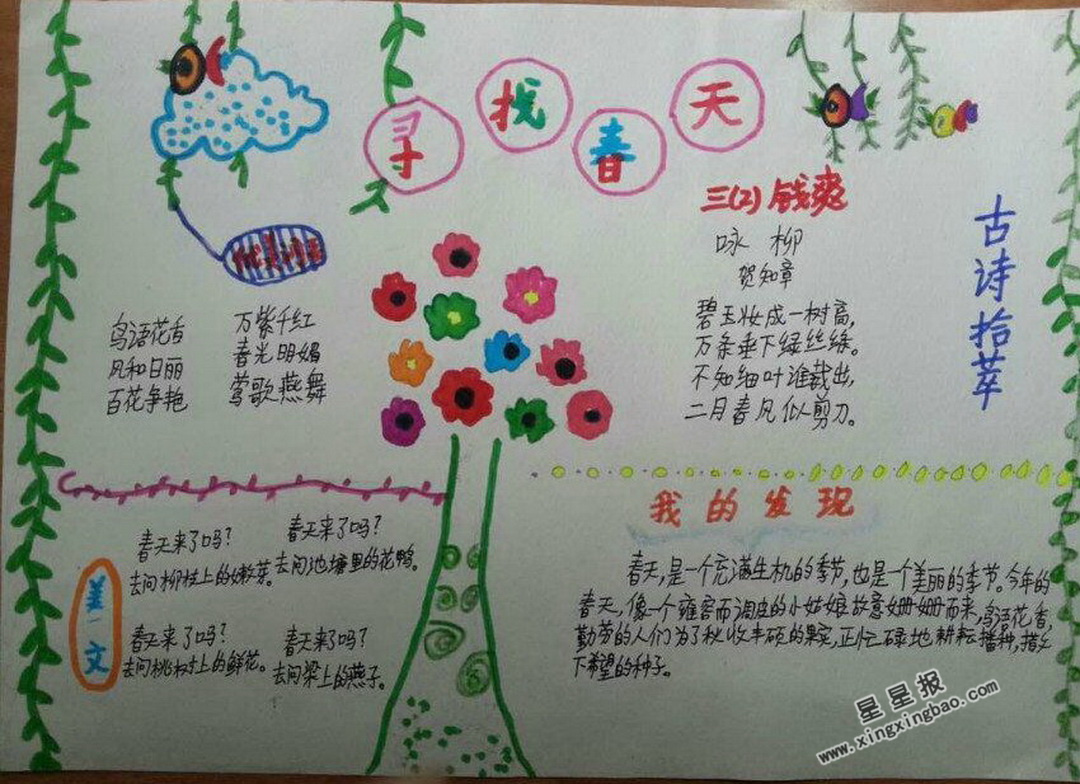 寻找春天
三(2) 钱爽
古诗拾萃
咏柳
贺知章
碧玉妆成一树高,
万条垂下绿丝绦。
不知细叶谁裁出,
二月春风似剪刀。
鸟语花香
风和日丽
百花争艳
万紫千红
春光明媚
莺歌燕舞
美文
春天来了吗?
去问柳枝上的嫩芽。
春天来了吗?
去问池塘里的花鸭。
春天来了吗?
去问桃树上的鲜花。
春天来了吗?
去问梁上的燕子。
我的发现
春天,是一个充满生机的季节,也是一个美丽的季节。今年的
春天,像一个雍容而调皮的小姑娘故意姗姗而来,鸟语花香,
勤劳的人们为了秋收丰硕的果实,正忙碌地耕耘播种,
下希望的种子。
星星报
www.xingxingbao.com